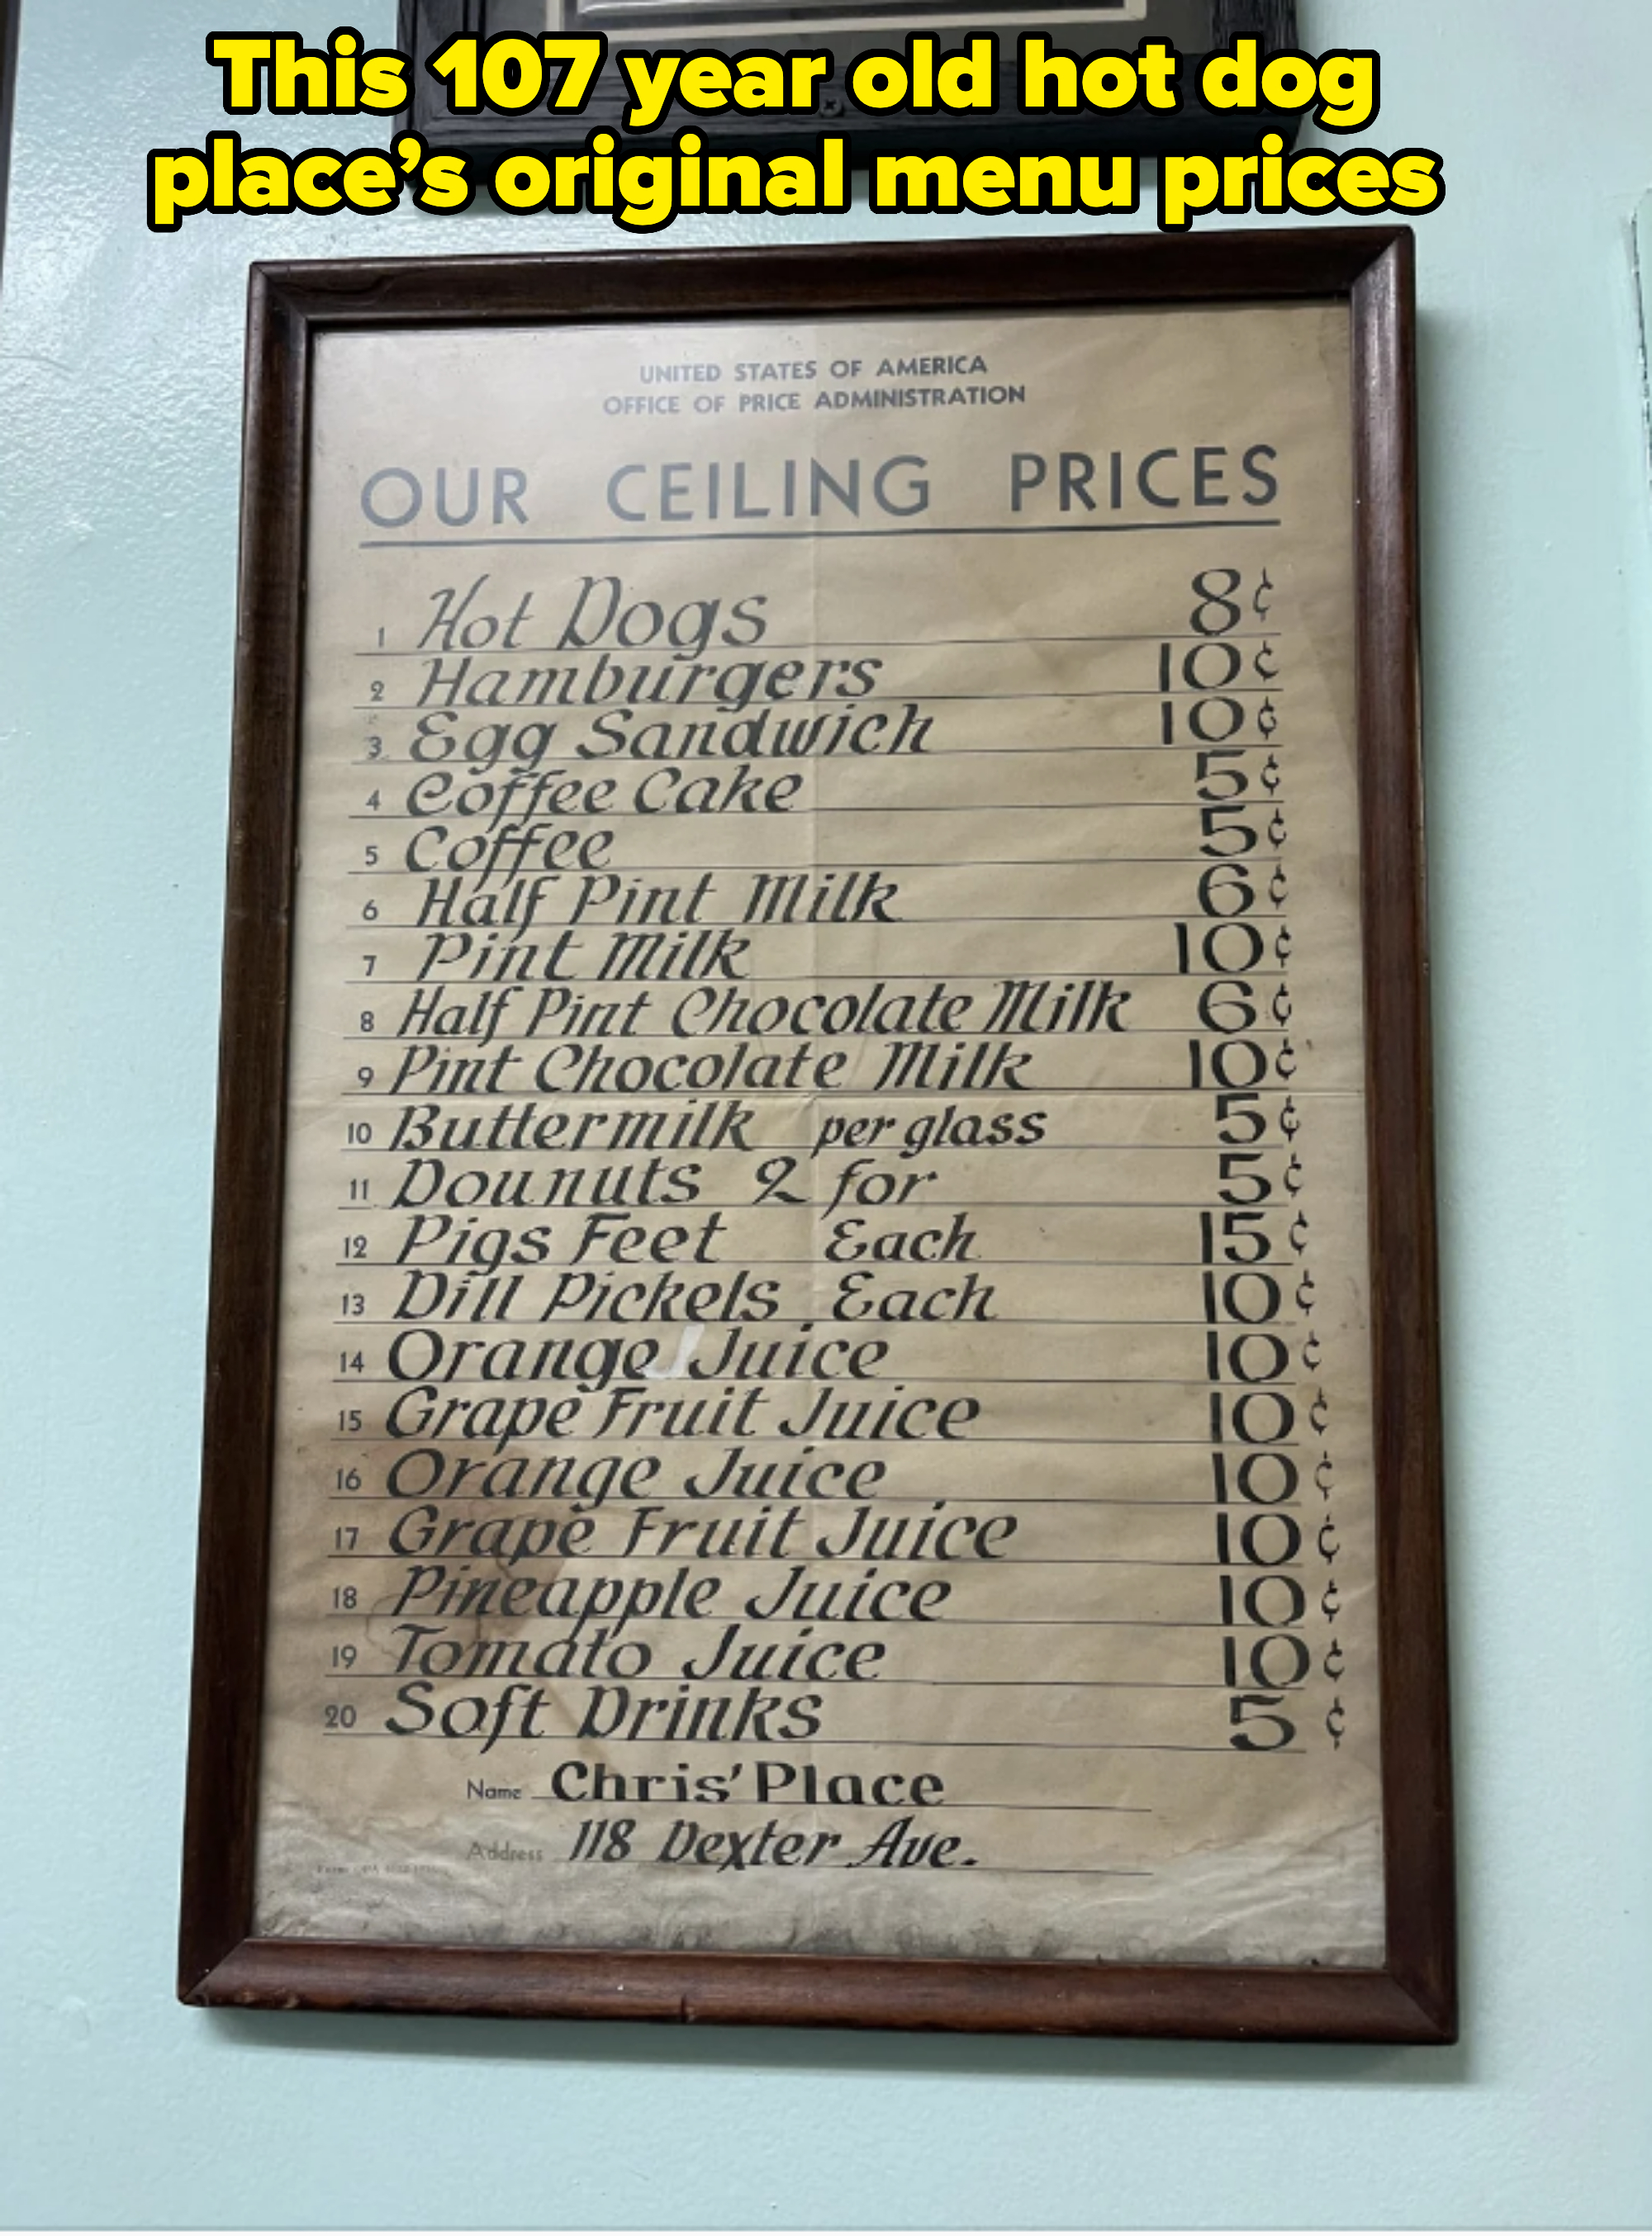 This 107 year old hot dog
place’s original menu prices
UNITED STATES OF AMERICA
OFFICE OF PRICE ADMINISTRATION
OUR CEILING PRICES
1 Hot Dogs 8¢
2 Hamburgers 10¢
3 Egg Sandwich 10¢
4 Coffee Cake 5¢
5 Coffee 5¢
6 Half Pint Milk 6¢
7 Pint Milk 10¢
8 Half Pint Chocolate Milk 6¢
9 Pint Chocolate Milk 10¢
10 Buttermilk per glass 5¢
11 Dounuts 2 for 5¢
12 Pigs Feet Each 15¢
13 Dill Pickels Each 10¢
14 Orange Juice 10¢
15 Grape Fruit Juice 10¢
16 Orange Juice 10¢
17 Grape Fruit Juice 10¢
18 Pineapple Juice 10¢
19 Tomato Juice 10¢
20 Soft Drinks 5¢
Name Chris' Place
Address 118 Dexter Ave.